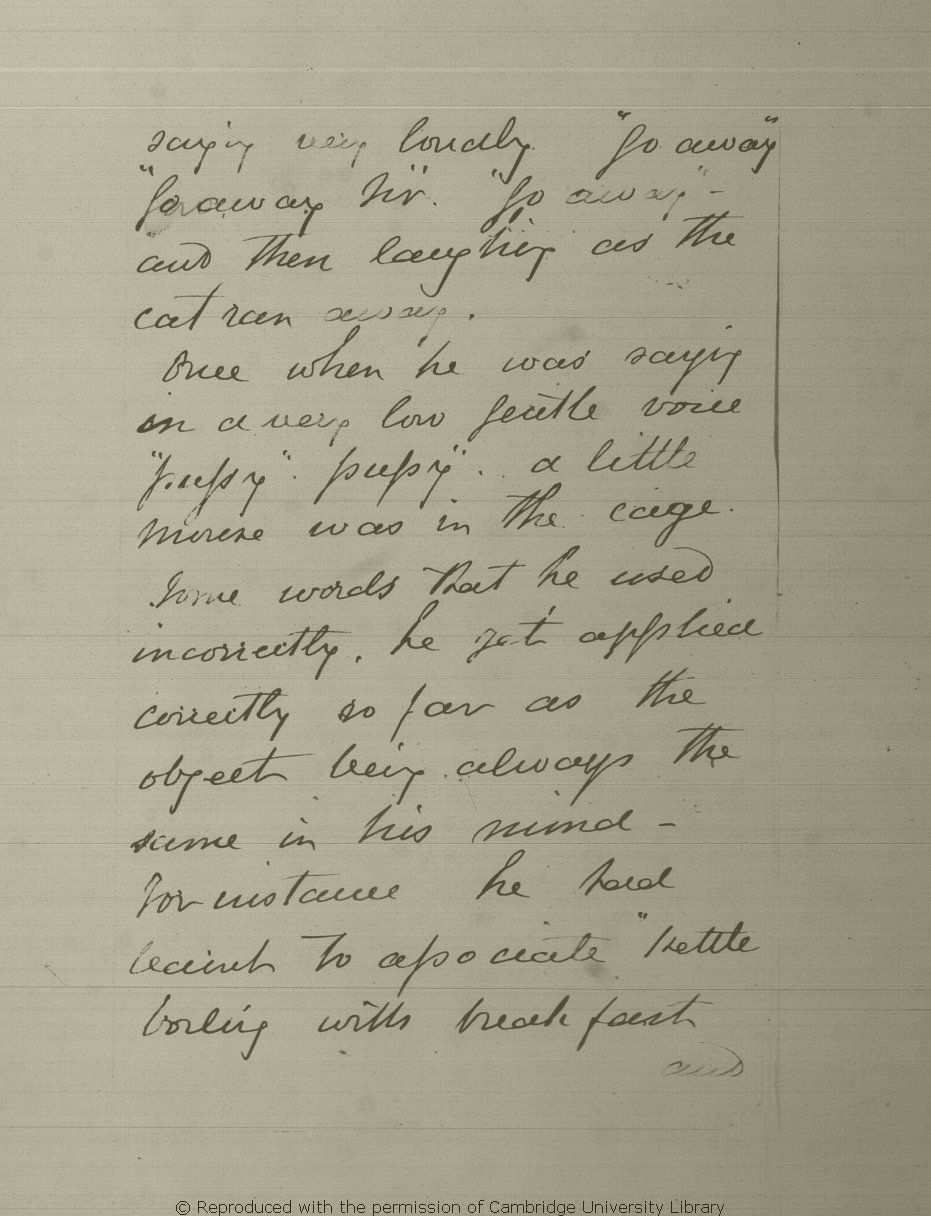 saying very loudly "Go away"
"Go away Sir". "Go away" -
and then laughing as the
cat ran away.
Once when he was saying
in a very low gentle voice
"pussy" pussy". a little
mouse was in the cage.
Some words that he used
incorrectly, he yet applied
correctly so far as the
object being always the
same in his mind -
For instance he had
learnt to associate "Kettle
boiling with breakfast
and
© Reproduced with the permission of Cambridge University Library